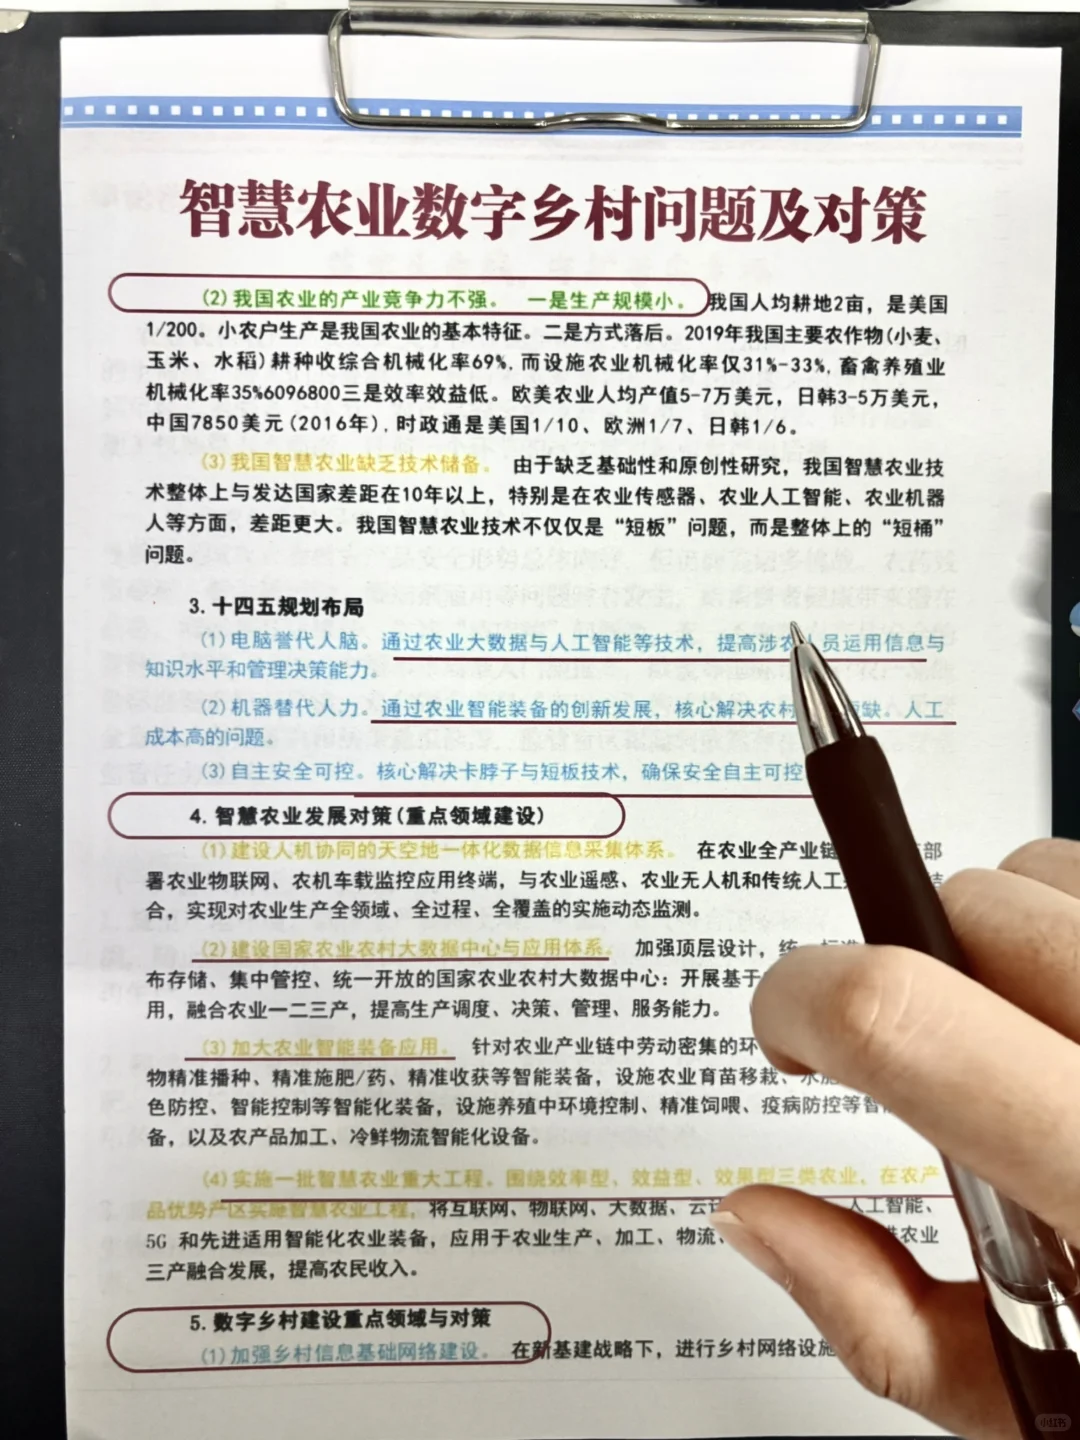 智慧农业数字乡村问题及对策
(2)我国农业的产业竞争力不强。 一是生产规模小。我国人均耕地2亩，是美国
1/200。小农户生产是我国农业的基本特征。二是方式落后。2019年我国主要农作物(小麦、
玉米、水稻)耕种收综合机械化率69%,而设施农业机械化率仅31%-33%,畜禽养殖业
机械化率35%6096800三是效率效益低。欧美农业人均产值5-7万美元，日韩3-5万美元，
中国7850美元(2016年),时政通是美国1/10、欧洲1/7、日韩1/6。
(3)我国智慧农业缺乏技术储备。 由于缺乏基础性和原创性研究，我国智慧农业技
术整体上与发达国家差距在10年以上，特别是在农业传感器、农业人工智能、农业机器
人等方面，差距更大。我国智慧农业技术不仅仅是“短板”问题，而是整体上的“短桶”
问题。
3.十四五规划布局
(1)电脑誉代人脑。通过农业大数据与人工智能等技术，提高涉农人员运用信息与
知识水平和管理决策能力。
(2)机器替代人力。通过农业智能装备的创新发展，核心解决农村 缺。人工
成本高的问题。
(3)自主安全可控。核心解决卡脖子与短板技术，确保安全自主可控
4.智慧农业发展对策(重点领域建设)
(1)建设人机协同的天空地一体化数据信息采集体系。 在农业全产业链 部
署农业物联网、农机车载监控应用终端，与农业遥感、农业无人机和传统人工 结
合，实现对农业生产全领域、全过程、全覆盖的实施动态监测。
(2)建设国家农业农村大数据中心与应用体系。 加强顶层设计，统一标准
布存储、集中管控、统一开放的国家农业农村大数据中心：开展基于
用，融合农业一二三产，提高生产调度、决策、管理、服务能力。
(3)加大农业智能装备应用。 针对农业产业链中劳动密集的环
物精准播种、精准施肥/药、精准收获等智能装备，设施农业育苗移栽、水
色防控、智能控制等智能化装备，设施养殖中环境控制、精准饲喂、疫病防控等智
备，以及农产品加工、冷鲜物流智能化设备。
(4)实施一批智慧农业重大工程。围绕效率型、效益型、效果型三类农业，在农产
品优势产区实施智慧农业工程，将互联网、物联网、大数据、云 人工智能、
5G 和先进适用智能化农业装备，应用于农业生产、加工、物流、 农业
三产融合发展，提高农民收入。
5.数字乡村建设重点领域与对策
(1)加强乡村信息基础网络建设。 在新基建战略下，进行乡村网络设施
小红书